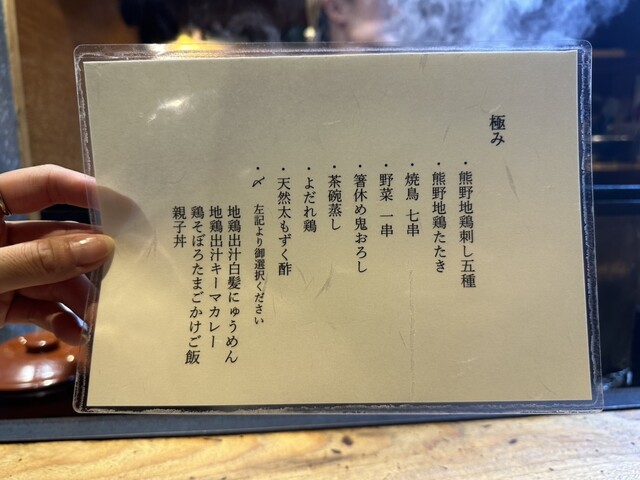 極み
・熊野地鶏刺し五種
・熊野地鶏たたき
・焼鳥 七串
・野菜 一串
・箸休め鬼おろし
・茶碗蒸し
・よだれ鶏
・天然太もずく酢
・〆 左記より御選択ください
地鶏出汁白髪にゅうめん
地鶏出汁キーマカレー
鶏そぼろたまごかけご飯
親子丼